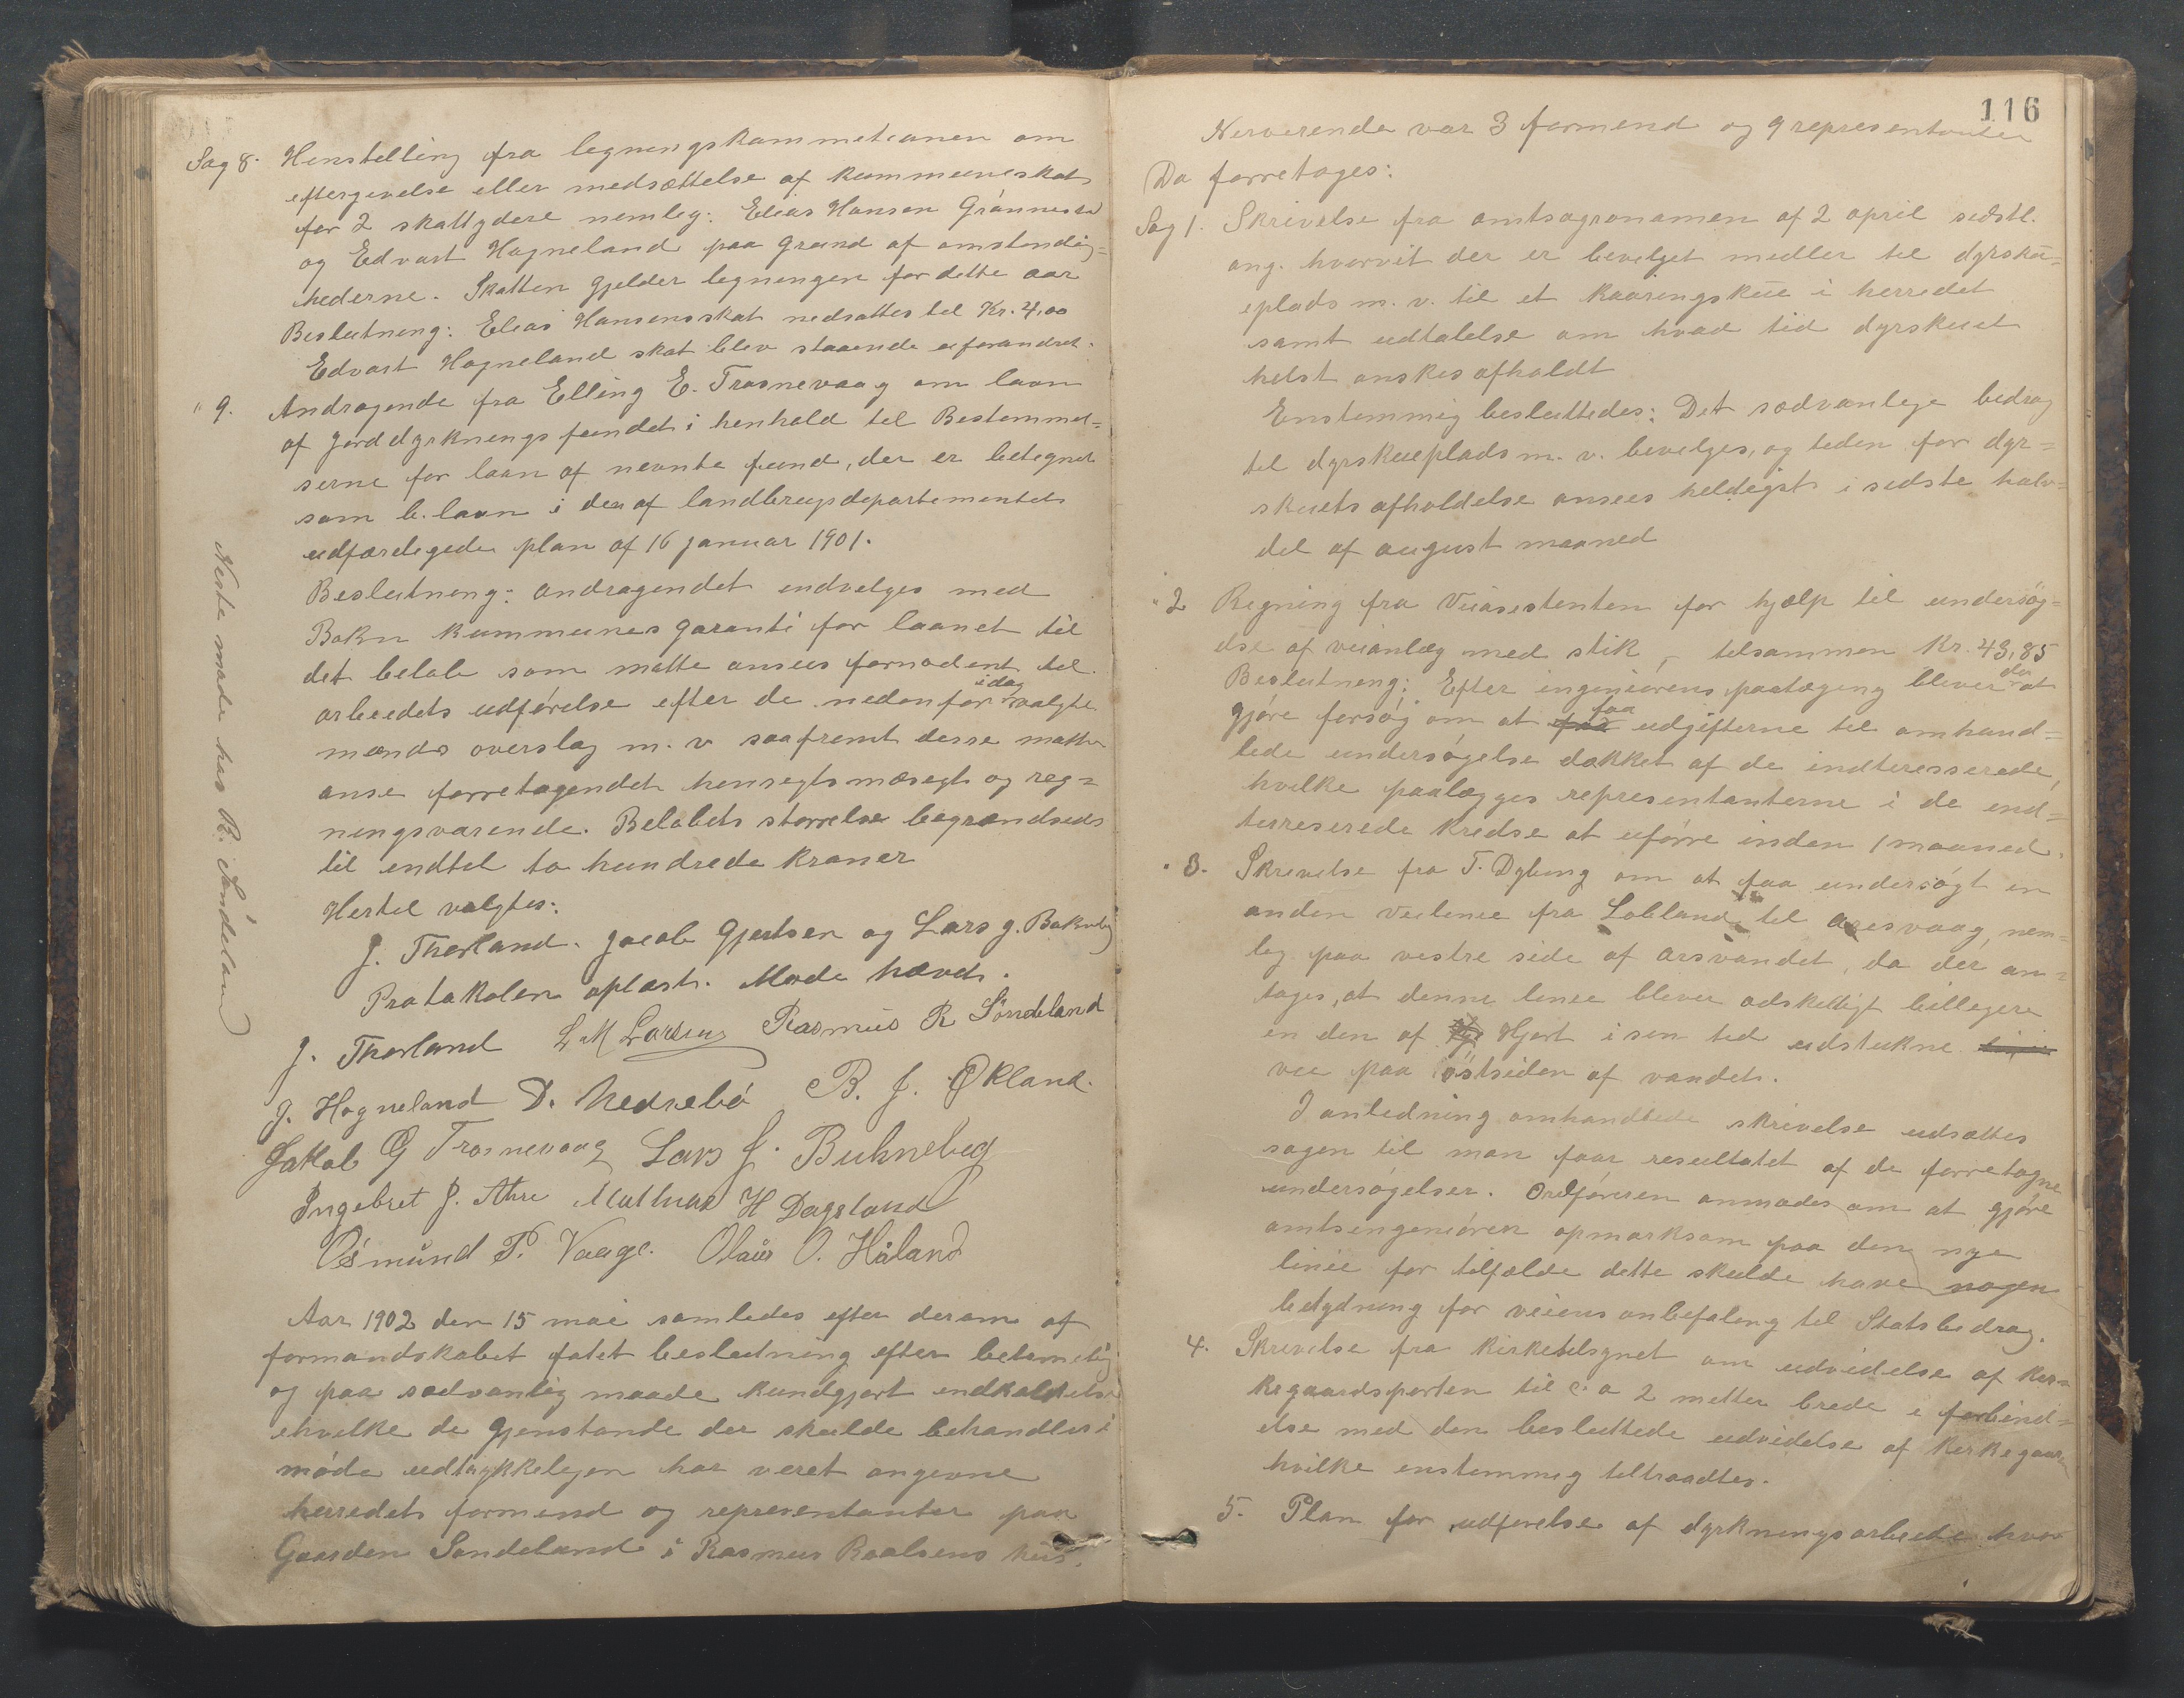 Sag 8. Henstelling fra legningskommetionen om
eftergivelse eller medsættelse af kommuneskat
for 2 skattydere nemleg: Elias Hansen Grønnestad
og Edvart Hogneland paa grund af omstendig=
hederne. Skatten gjelder legningen for dette aar
Beslutneng: Elias Hansens skat nedsattes til Kr. 4,00
Edvart Hogneland skat blev staaende uforandret.
" 9. Andragende fra Elling E. Trosnevaag om laan
af jorddyrknengsfundet i henhold tel Bestemmel=
serne for laan af nevnte fund, der er betegnet
som b. laan i den af landbrugsdepartementets
udfærdegede plan af 16 januar 1901.
Beslutneng: andragendet indvelges med
Bokn kummunes garanti for laanet til
det beløb som matte ansees fornødent tel
idag
arbeidets udførelse efter de nedenfor valgte
mænds overslag m. v saafremt desse matte
anse forretagendet hensegtsmæsegt og reg=
ningsvarende. Beløbets størrelse begrændseds
til indtel to hundrede kroner
Hertel valgtes:
J. Thorland. Jacob Gjertsen og Lars J. Bokneberg
Protokolen oplæst. Møde hævet.
J. Thorland L M Larsen Rasmus R Söndeland
J. Hogneland D. Nedrebö B. J. Økland.
Jakob G Trosnevaag Lars J. Bukneberg
Ingebret J. Are Mathias H Dagsland
Osmund P. Vaage. Olaus O. Håland
Neste møde hos R. Søndeland
Aar 1902 den 15 mai samledes efter derom af
formandskabet fatet beslutning efter betimelig
og paa sædvanlig maade kundgjort indkaldelse
ihvelke de gjenstande der skulde behandles i
møde udtrykkelegen har veret angevne
herredets formend og representanter paa
Gaarden Søndeland i Rasmus Roalsens hus.
116
Nerverende var 3 formend og 9 representanter
Da forretoges:
Sag 1. Skrivelse fra amtsagronomen af 2 april sidstl.
ang. hvorvit der er bevelget medler tel dyrsku=
eplads m. v. til et kaaringskue i herredet
samt udtalelse om hvad tid dyrskuet
helst ønskes afholdt
Enstemmig besluttedes: Det sædvanlege bedrag
tel dyrskueplads m. v. bevelges, og teden for dyr=
skuets afholdelse ansees heldigst i sedste halv=
del af august maaned
" 2 Regning fra Veiasestenten for hjælp til undersøg=
else af veianlæg med stik, telsammen Kr. 43,85
Beslutneng: Efter ingeniørens paategning blever da at
faa
gjøre forsøg om at udgifterne tel omhand=
lede undersøgelse dækket af de indteresserede,
hvilke paalægges representanterne i de end=
terreserede kredse at uførre inden 1 maaned.
" 3. Skrevelse fra T. Dybing om at faa undersøgt en
anden veilenie fra Løbland til aresvaag, nem=
leg paa vestre side af arsvandet, da der an=
tages, at denne lenie blever adskelligt billegere
en den af Hjort i sen ted udstukne
vei paa østsiden af vandet.
I anledning omhandlede skrivelse udsættes
sagen til man faar resultatet af de forretagne
undersøgelser. Ordføreren anmodes om at gjøre
amtsingeniøren opmærksom paa den nye
linie for tilfælde dette skulde have nogen
betydning for veiens anbefaleng tel Statsbedrag.
4. Skrivelse fra kirketelsynet om udvidelse af kir=
kegaardsporten til c. a 2 metter brede i forbind=
else med den besluttede udvidelse af kerkegaarden
hvilke enstemmig teltraadtes.
5. Plan for udførelse af dyrkningsarbeide hvor